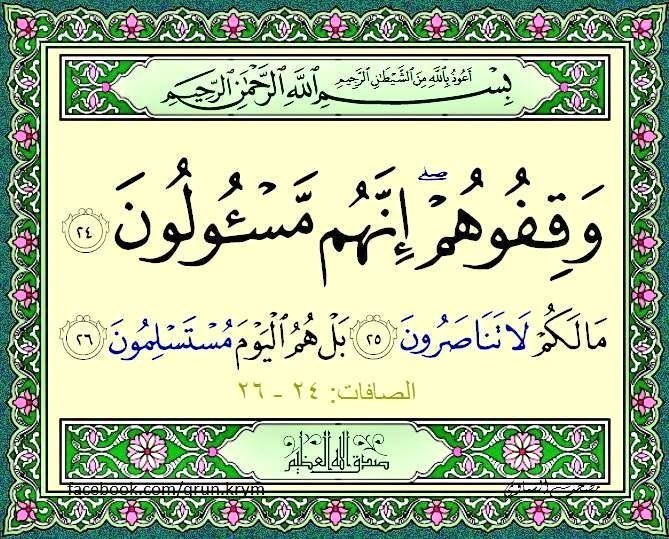 أَعُوذُ بِٱللَّهِ مِنَ ٱلشَّيْطَٰنِ ٱلرَّجِيمِ
بِسْمِ ٱللَّهِ ٱلرَّحْمَٰنِ ٱلرَّحِيمِ
وَقِفُوهُمْ ۖ إِنَّهُم مَّسْـُٔولُونَ ٢٤
مَا لَكُمْ لَا تَنَاصَرُونَ ٢٥ بَلْ هُمُ ٱلْيَوْمَ مُسْتَسْلِمُونَ ٢٦
الصافات: ٢٤ - ٢٦
صدق الله العظيم
facebook.com/qrun.krym